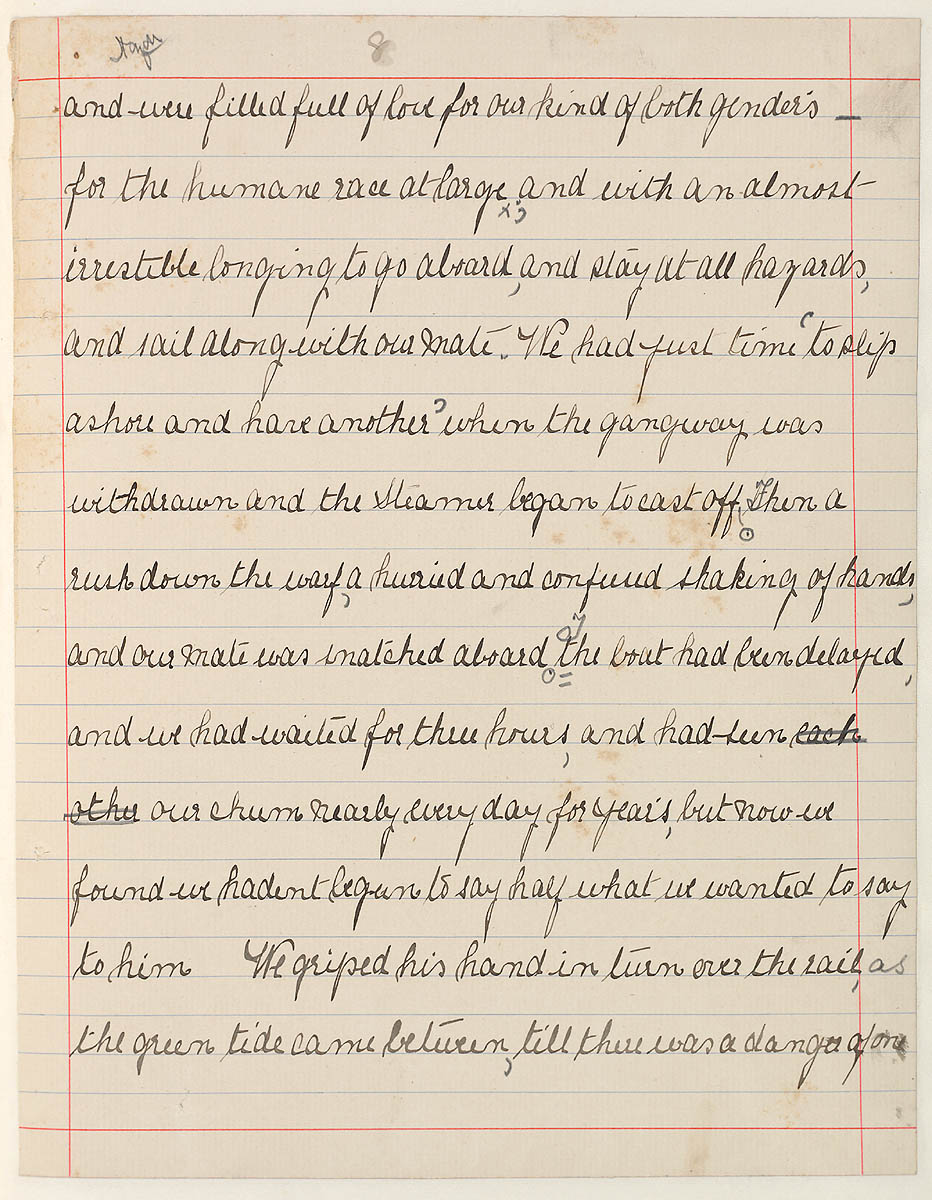 8
and were filled full of love for our kind of both gender's —
for the humane race at large, and with an almost
irrestible longing to go aboard, and stay at all hazards,
and sail along with our mate. We had just time 'to slip
ashore and have another' when the gangway was
withdrawn and the steamer began to cast off. Then a
rush down the warf, a hurried and confused shaking of hands,
and our mate was snatched aboard. the boat had been delayed,
and we had waited for three hours, and had seen each
other our chum nearly every day for year's, but now we
found we hadent begun to say half what we wanted to say
to him We griped his hand in turn over the rail, as
the green tide came between, till there was a danger of one